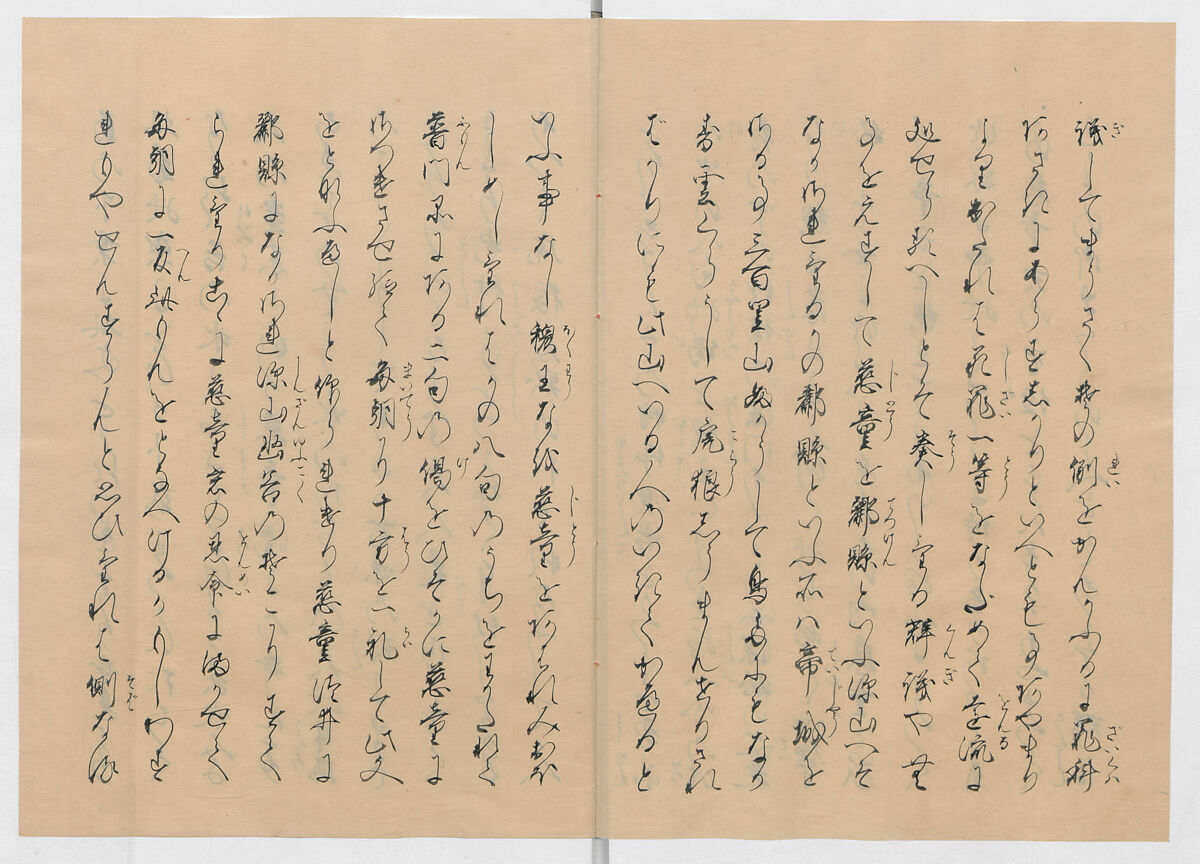 議してまうさく其の例をかんかふるに罪科
あさきにあらすしかりといへとも事あやまり
より出たれは死罪一等をなだめて遠流に
処せらるへしとそ奏しける群議やむ
事をえすして慈童を酈縣といふ深山へそ
なかされけるかの酈縣といふ所ハ帝城を
さる事三百里山ふかうして鳥たにもなか
す雲くらうして虎狼みちまんせりされ
ばかりにも此山へいる人のいきてかへると
いふ事なし穆王なを慈童をあはれみおほ
しめしけれはかの八句のうちをわかたれて
普門品にある二句の偈をひそかに慈童に
さつけさせ給て毎朝に十方を一礼して此文
をとなふへしと仰られけり慈童つゐに
酈縣になかされ深山幽谷の底にすて
られけりこゝに慈童君の恩命にまかせて
毎朝に一反此もんをとなへけるかもしわす
れもやせんすらんと思ひけれは側なる